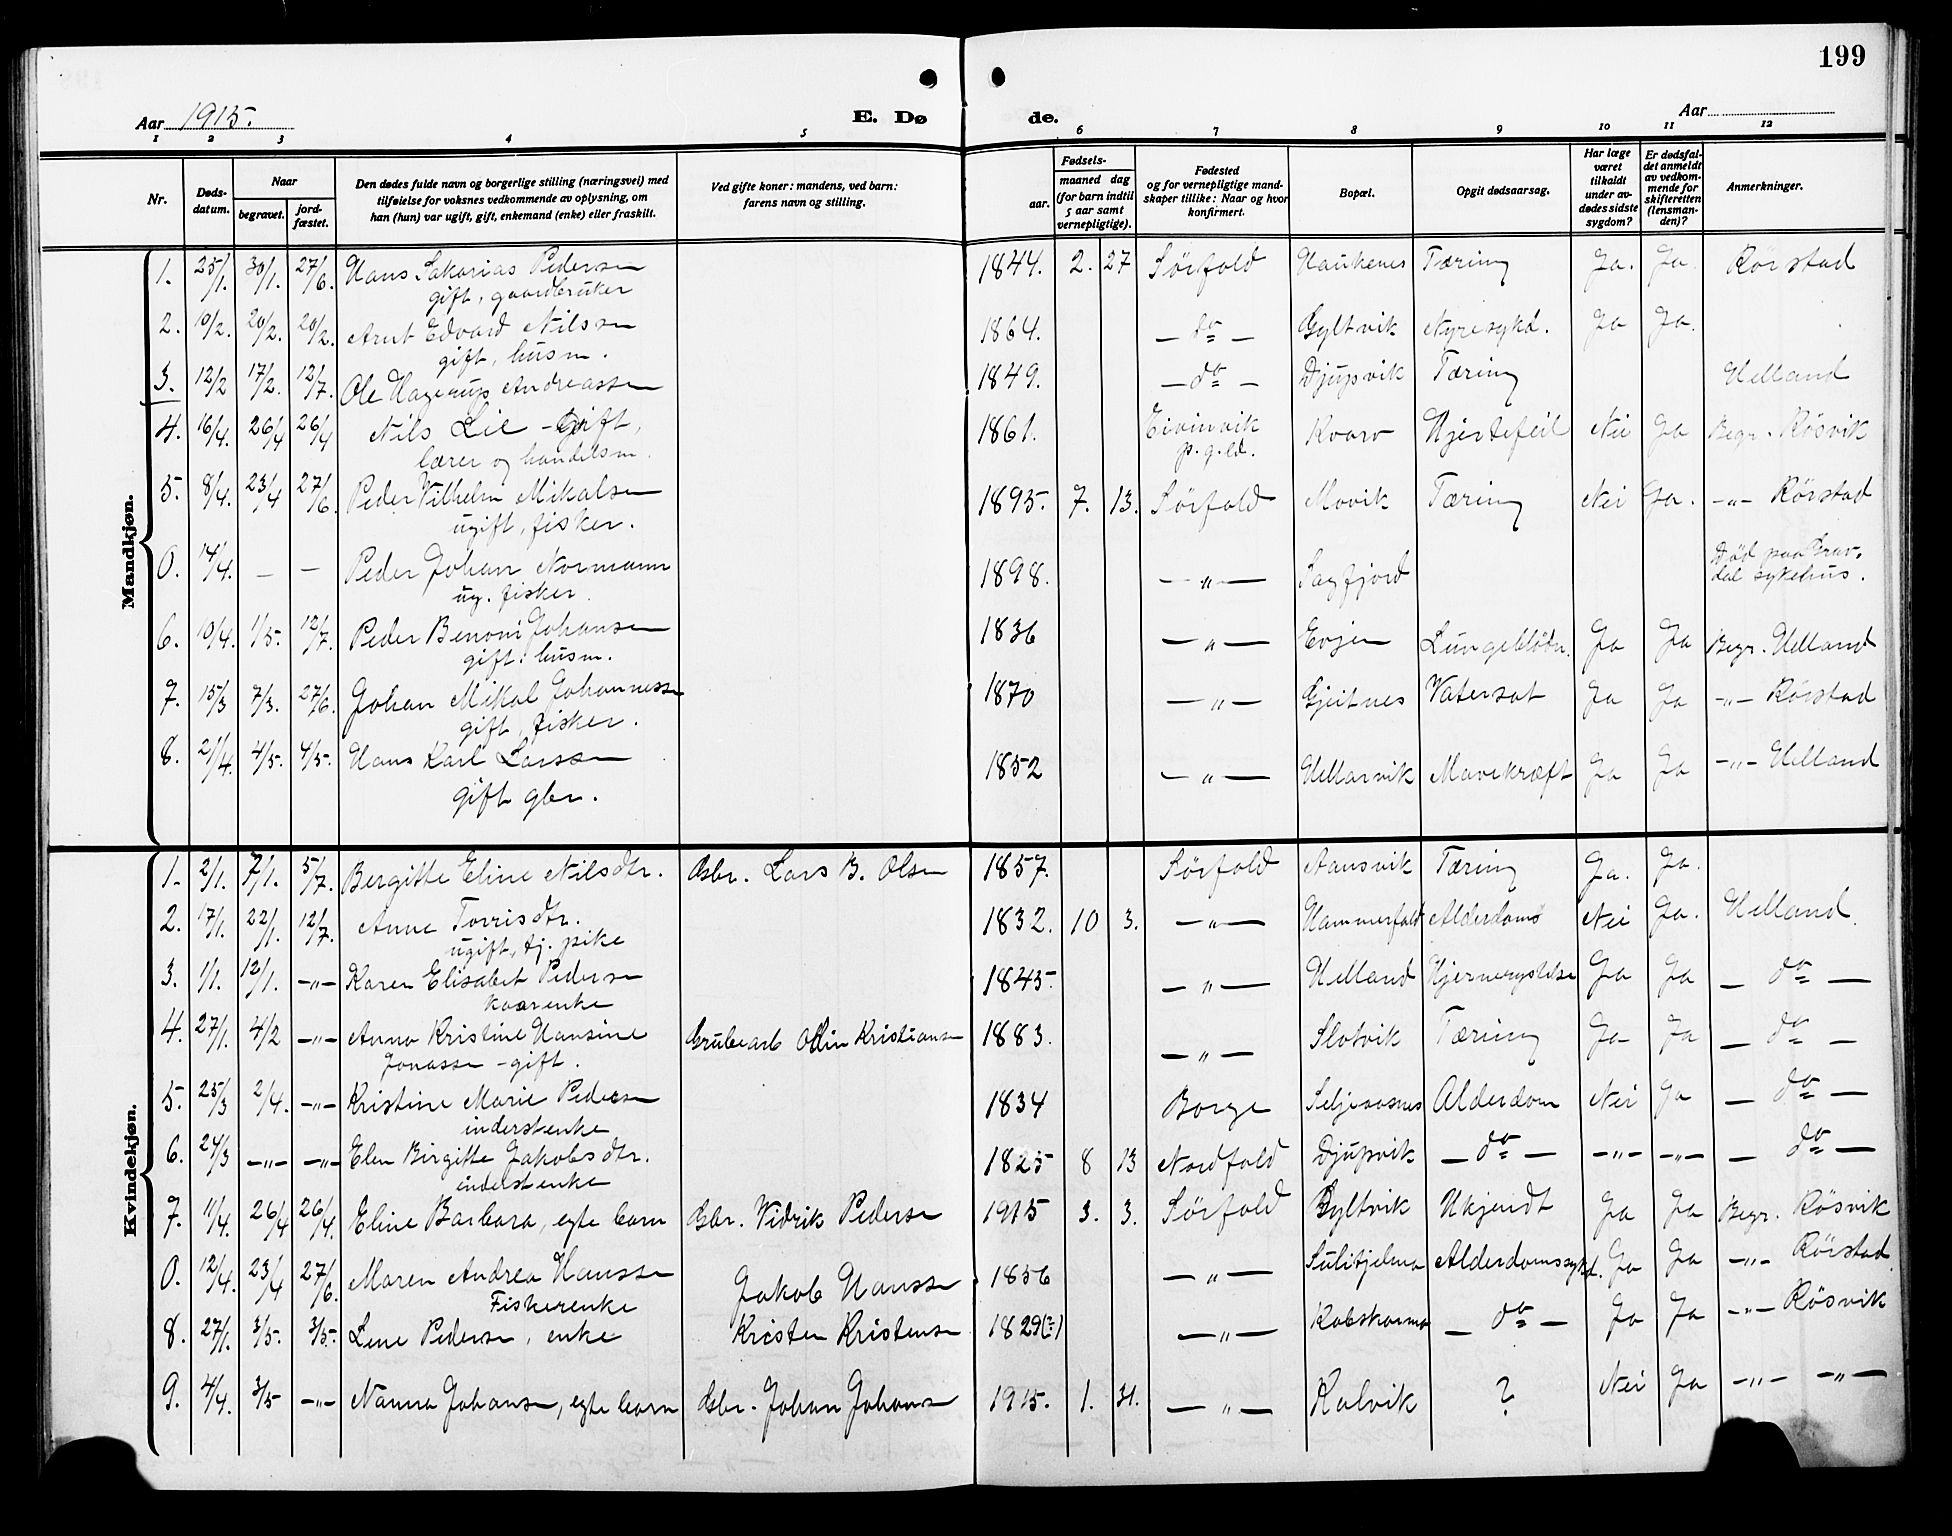 199
Aar 1915.
E. Dø de.
Aar
1 2 3 4 5 6 7 8 9 10 11 12
Nr.
Døds-
datum.
Naar
begravet.
jord-
fæstet.
Den dødes fulde navn og borgerlige stilling (næringsvei) med
tilføielse for voksnes vedkommende av oplysning, om
han (hun) var ugift, gift, enkemand (enke) eller fraskilt.
Ved gifte koner: mandens, ved barn:
farens navn og stilling.
Fødsels-
aar.
maaned dag
(for barn indtil
5 aar samt
vernepligtige).
Fødested
og for vernepligtige mand-
skaper tillike: Naar og hvor
konfirmert.
Bopæl.
Opgit dødsaarsag.
Har læge
været
tilkaldt
under av-
dødes sidste
sygdom?
Er dødsfal-
det anmeldt
av vedkom-
mende for
skifteretten
(lensman-
den)?
Anmerkninger.
Mandkjøn.
1. 25/1. 30/1. 27/6. Hans Sakarias Pedersen 1844. 2. 27 Sörfold Haukenes Tæring Ja. Ja Rörstad
gift, gaardbruker
2. 10/2. 20/2. 20/2. Arnt Edvard Nilssen 1864. — do — Gyltvik Nyresykd. Ja Ja.
gift, husm.
3. 12/2 17/2. 12/7. Ole Hagerup Andreassen 1849. — do — Djupvik Tæring Helland
4. 16/4. 26/4 26/4 Nils Lie - Gift, 1861. Eivinvik Kvarv Hjertefeil Nei Ja Begr. Rösvik
lærer og handelsm. p.gld.
5. 8/4. 23/4 27/6. Peder Vilhelm Mikalsen 1895. 7. 13. Sörfold Movik Tæring Nei Ja. -"- Rörstad
ugift, fisker.
0. 14/4. — — Peder Johan Normann 1898. — " — Sagfjord Död paa Grav-
ug. fisker. dal sykehus.
6. 19/4. 1/5. 12/7. Peder Benoni Johansen 1836 — " — Evjen Lungeblödn. Ja Ja Begr. Helland
gift. husm.
7. 15/3 7/3. 27/6. Johan Mikal Johannessen 1870 — " — Gjeitnes Vatersot Ja Ja -"- Rörstad
gift, fisker.
8. 21/4. 4/5. 4/5. Hans Karl Larssen 1852 — " — Hellarvik Mavekræft Ja Ja -"- Helland
gift gbr.
Kvindekjøn.
1. 2/1. 7/1. 5/7. Bergitte Eline Nilsdtr. Gbr. Lars B. Olsen 1857. Sörfold Aansvik Tæring Ja. Ja.
2. 17/1. 22/1. 12/7. Anne Torrisdtr. 1832. 10 3. — " — Hammerfald Alderdoms Nei Ja. Helland.
ugift, tj. pike
3. 1/1. 12/1. -"- Karen Elisabet Pedersen 1845. — " — Helland Hjernerystelse Ja Ja — do —
kaarenke
4. 27/1. 4/2 -"- Anna Kristine Hansine Grubearb Odin Kristiansen 1883. — " — Slotvik Tæring Ja Ja — do —
Jonassen - gift.
5. 25/3 2/4. -"- Kristine Marie Pedersen 1834 Borge Seljeaasnes Alderdom Nei Ja — do —
inderstenke
6. 24/3 -"- -"- Elen Birgitte Jakobsdtr. 1825 8 13 Nordfold Djupvik — do — -"- -"- — do —
inderstenke
7. 11/4. 26/4 26/4. Eline Barbara, egte barn Gbr. Vidrik Pedersen 1915 3. 3. Sörfold Gyltvik Ukjendt Ja Ja Begr. Rösvik
0. 12/4. 23/4 27/6. Maren Andrea Hanssen Jakob Hanssen 1856 — " — Sulitjelma Alderdomssykd. Ja Ja -"- Rörstad
Fiskerenke
8. 27/1. 3/5. 3/5. Lene Pedersen, enke Kristen Kristensen 1829(?) — " — Kobskarmo — do — Ja Ja -"- Rösvik
9. 4/4. 3/5 -"- Nanna Johansen, egte barn Gbr. Johan Johansen 1915. 1. 31. — " — Kalvik ? Nei Ja -"- -"-